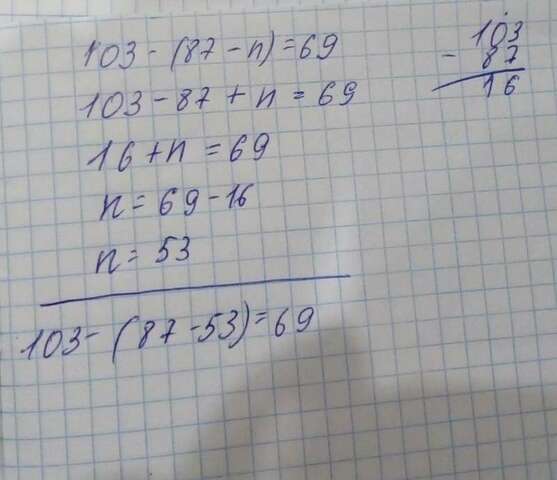 103 - (87 - n) = 69
103 - 87 + n = 69
16 + n = 69
n = 69 - 16
n = 53
103 - (87 - 53) = 69
103
- 87
16